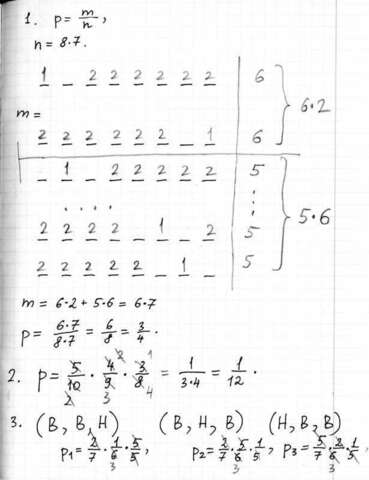 1. p = m/n,
n = 8·7.
1 _ 2 2 2 2 2 2 | 6
m = } 6·2
2 2 2 2 2 2 _ 1 | 6
_ 1 _ 2 2 2 2 2 | 5
. . . . ⋮ } 5·6
2 2 2 2 _ 1 _ 2 | 5
2 2 2 2 2 _ 1 _ | 5
m = 6·2 + 5·6 = 6·7
p = 6·7/8·7 = 6/8 = 3/4.
2. p = 5/10 · 4/9 · 3/8 = 1/3·4 = 1/12.
3. (B, B, H) (B, H, B) (H, B, B)
p₁ = 2/7 · 1/6 · 5/5, p₂ = 2/7 · 5/6 · 1/5, p₃ = 5/7 · 2/6 · 1/5,